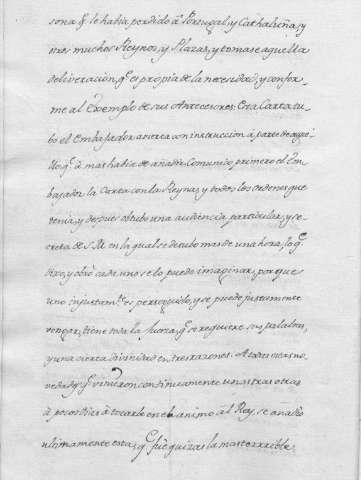 sona q̃ le habia perdido à Portugal, y Cathaluña, y
otros muchos Reynos, y Plazas, y tomase aquella
deliveracion, q̃ es propia de la necesidad, y confor-
me al Exemplo de sus Antecesores: Esta Carta tu-
bo el Embajador abierta con instruccion à parte de aque-
llo q̃ à mas habia de añadir. Comunicò primero el Em-
bajador la Carta con la Reyna, y todos los ordenes que
tenia, y despues obtubo una audiencia particular, y se-
creta de S.M. en la qual se detubo mas de una hora, lo q̃
dixo, y obrò cada uno se lo puede imaginar, porque
uno injustam.te es perseguido, y se puede justamente
vengar, tiene toda la fuerza, q̃ se requiere en sus palabras,
y una cierta divinidad en tres razones. A todas estas no-
vedades q̃ vinieron continuamente unas tras otras
à pocos dias à tocarle en el animo àl Rey, se anadio
ultimamente esta, q̃ fuè quizas la mas terrible